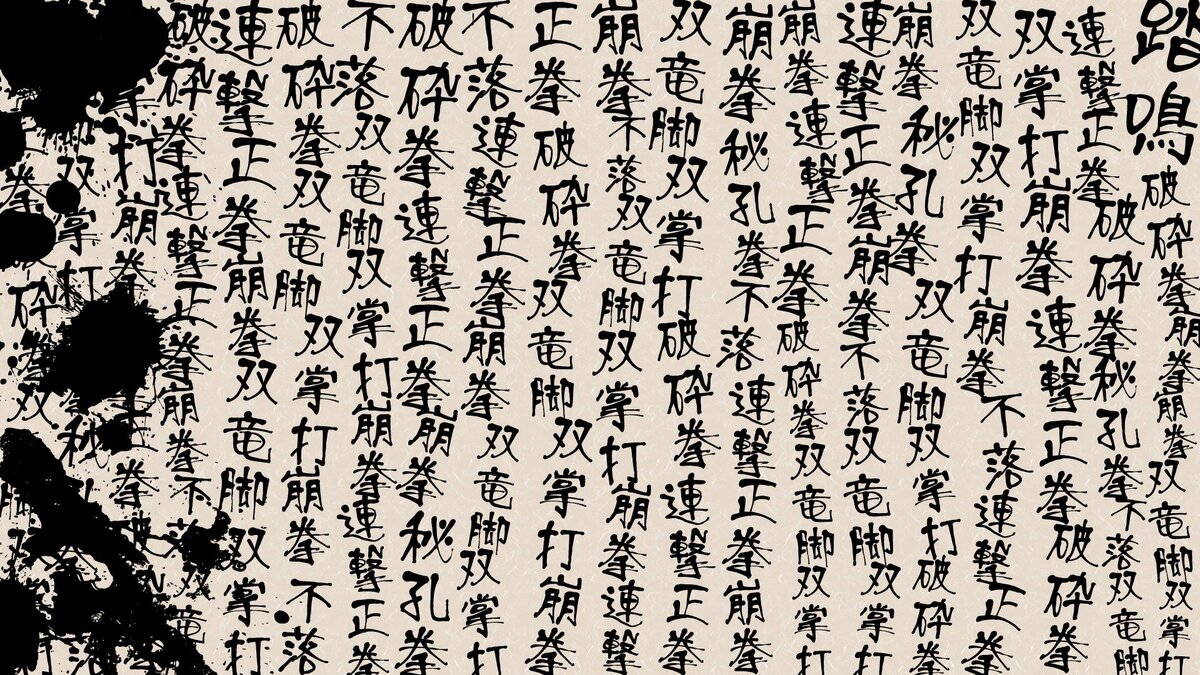 踏鳴
破砕拳崩拳崩拳双竜脚双掌打
連撃正拳破砕拳秘孔拳不落双竜脚
双掌打崩拳連撃正拳破砕拳
双竜脚双掌打崩拳不落連撃正拳
崩拳秘孔拳双竜脚双掌打破砕拳
連撃正拳崩拳不落双竜脚双掌打
崩拳連撃正拳破砕拳双竜脚双掌打
崩拳秘孔拳不落連撃正拳崩拳
双竜脚双掌打破砕拳連撃正拳
崩拳不落双竜脚双掌打崩拳連撃
正拳破砕拳双竜脚双掌打崩拳
不落連撃正拳崩拳双竜脚双掌打
破砕拳連撃正拳崩拳秘孔拳
不落双竜脚双掌打崩拳連撃正拳
破砕拳双竜脚双掌打崩拳不落
連撃正拳崩拳双竜脚双掌打
破砕拳連撃正拳崩拳不落双竜
打崩拳正拳破
双掌打秘
拳砕拳双脚